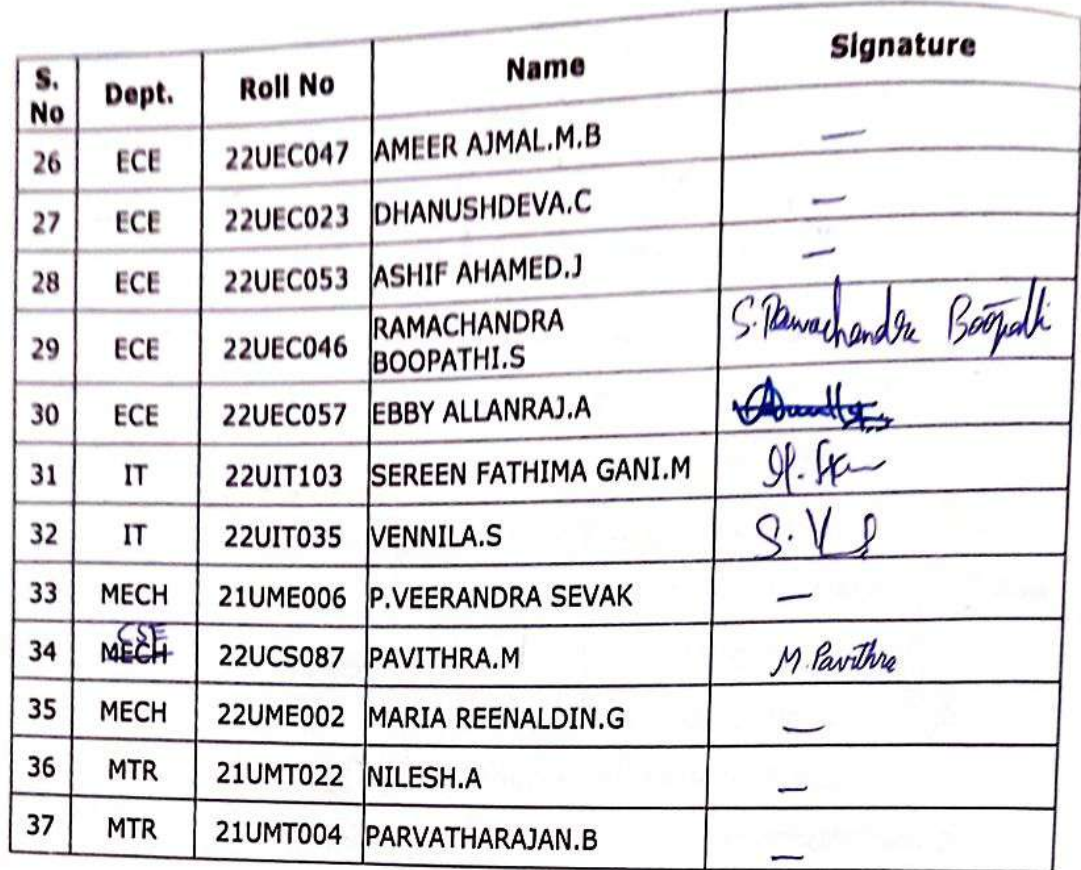 S. No Dept. Roll No Name Signature
26 ECE 22UEC047 AMEER AJMAL.M.B —
27 ECE 22UEC023 DHANUSHDEVA.C —
28 ECE 22UEC053 ASHIF AHAMED.J —
29 ECE 22UEC046 RAMACHANDRA BOOPATHI.S S. Ramachandra Boopathi
30 ECE 22UEC057 EBBY ALLANRAJ.A
31 IT 22UIT103 SEREEN FATHIMA GANI.M
32 IT 22UIT035 VENNILA.S
33 MECH 21UME006 P.VEERANDRA SEVAK —
34 MECH CSE 22UCS087 PAVITHRA.M M. Pavithra
35 MECH 22UME002 MARIA REENALDIN.G —
36 MTR 21UMT022 NILESH.A —
37 MTR 21UMT004 PARVATHARAJAN.B —